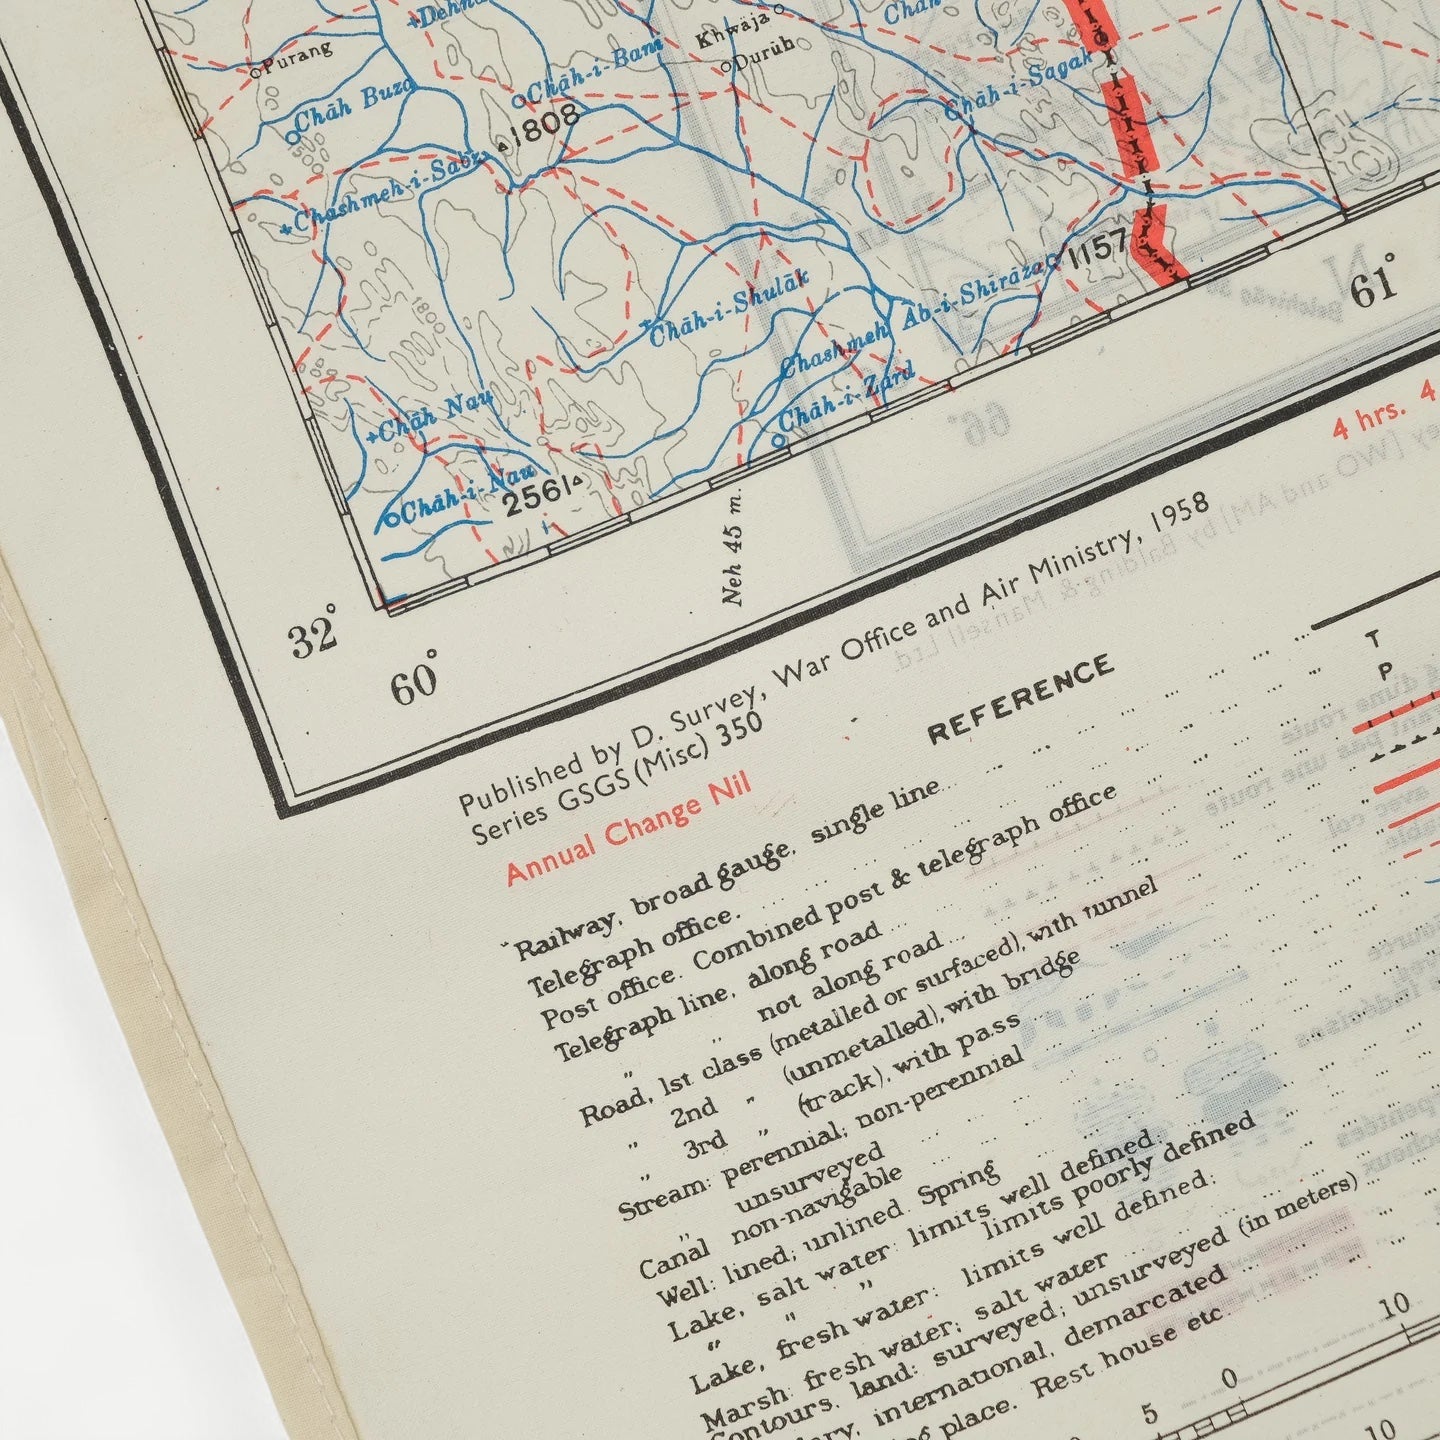 Dehn
Purang
Chāh Buza
Chāh-i-Bam
1808
Khwāja
Durūh
Chāh
Chāh-i-Sagak
Chashmeh-i-Sabz
1800
Chāh-i-Shulāk
Chashmeh Āb-i-Shirāza
1157
Chāh-i-Zard
Chāh Nau
Chāh-i-Nau
2561
61°
66°
32°
60°
Neh 45 m.
4 hrs. 4
Published by D. Survey, War Office and Air Ministry, 1958
Series GSGS (Misc) 350
Annual Change Nil
REFERENCE
Railway, broad gauge, single line
Telegraph office.
T
Post office. Combined post & telegraph office
P
Telegraph line, along road
„ „ not along road
Road, 1st class (metalled or surfaced), with tunnel
„ 2nd „ (unmetalled), with bridge
„ 3rd „ (track), with pass
Stream: perennial; non-perennial
„ unsurveyed
Canal non-navigable
Well: lined; unlined. Spring
Lake, salt water: limits well defined.
„ „ „ limits poorly defined
Lake, fresh water: limits well defined:
Marsh: fresh water; salt water
Contours, land: surveyed; unsurveyed (in meters)
international, demarcated
place. Rest house etc.
10
5
0
10